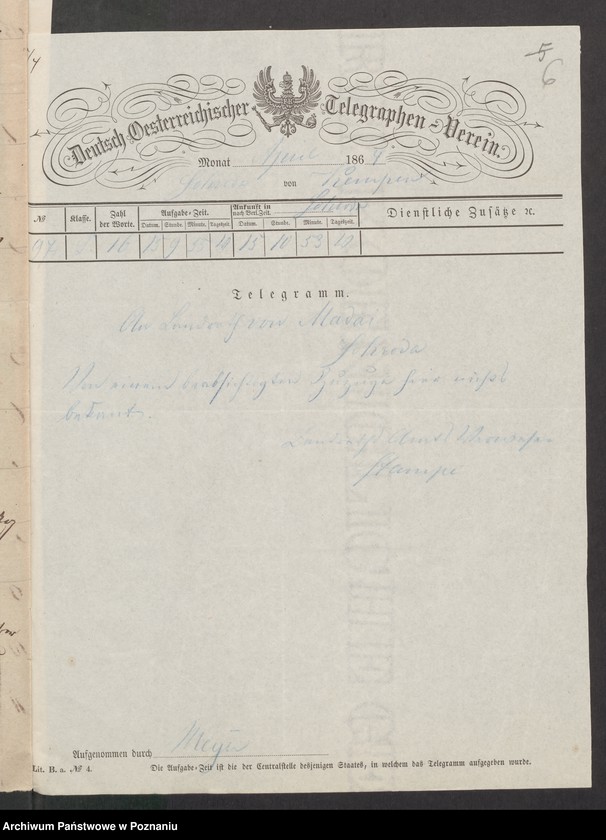 5
6
Deutsch-Oesterreichischer Telegraphen-Verein.
Monat 186
von Kempen
Schroda
№ Klasse. Zahl der Worte. Aufgabe-Zeit. Ankunft in Dienstliche Zusätze ꝛc.
Datum. Stunde. Minute. Tageszeit. Datum. Stunde. Minute. Tageszeit.
97 16 15 9 10 15 10 53 10
Telegramm.
An Landrath von Madai
Schroda
Von einem beabsichtigten Zuzuge hier nichts
bekannt.
Landraths Amts Verweser
Stampe
Aufgenommen durch Meyer
Lit. B. a. № 4. Die Aufgabe-Zeit ist die der Centralstelle desjenigen Staates, in welchem das Telegramm aufgegeben wurde.
Archiwum Państwowe w Poznaniu